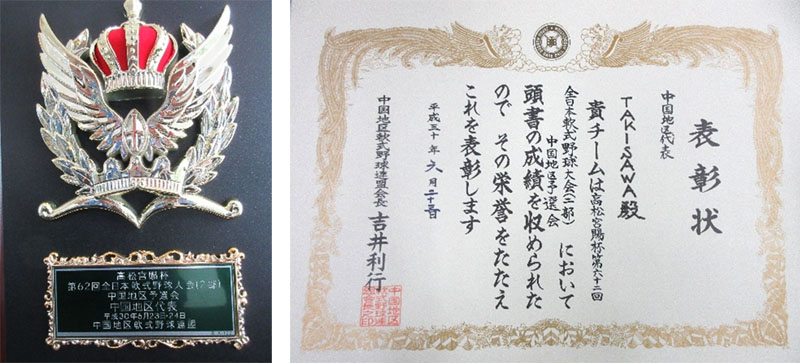 高松宮賜杯
第62回全日本軟式野球大会(2部)
中国地区予選会
中国地区代表
平成30年6月23日-24日
中国地区軟式野球連盟
表彰状
中国地区代表
TAKISAWA殿
貴チームは高松宮賜杯第六十二回
全日本軟式野球大会(二部)
中国地区予選会 において
頭書の成績を収められた
ので その栄誉をたたえ
これを表彰します
平成三十年六月二十四日
中国地区軟式野球連盟会長 吉井利行